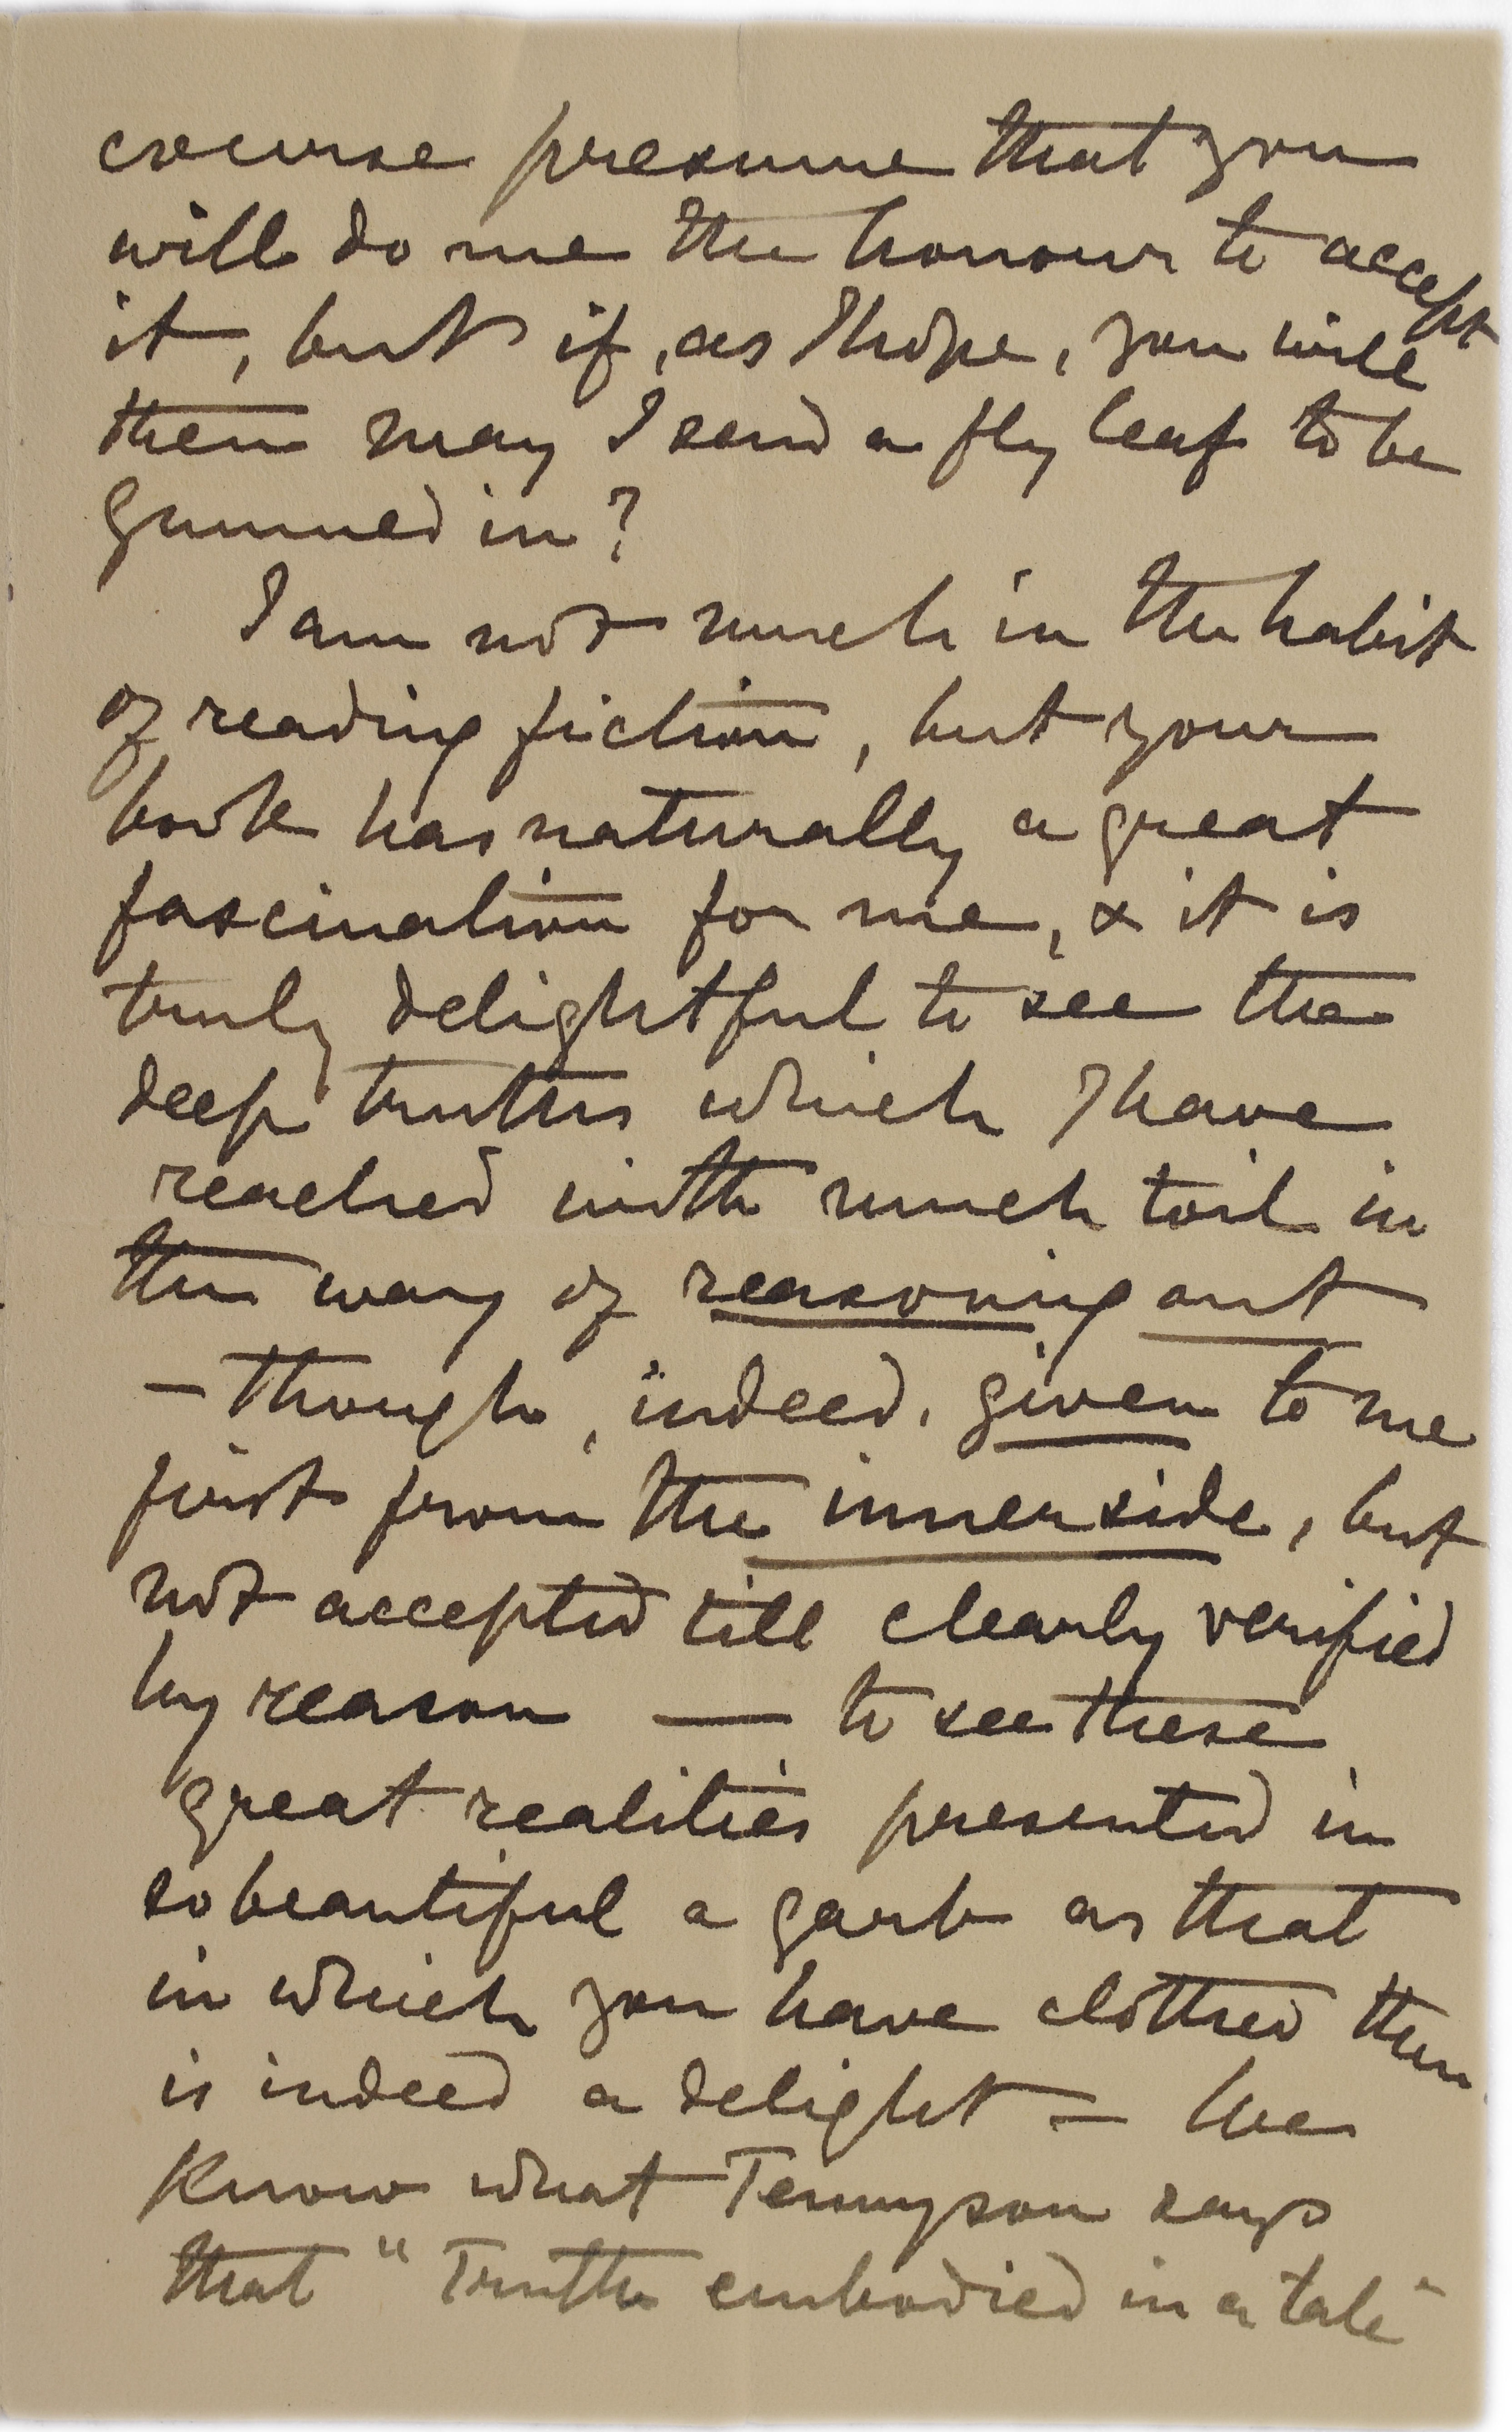 course presume that you
will do me the honour to accept
it, but if, as I hope, you will
then may I send a fly leaf to be
gummed in?
I am not much in the habit
of reading fiction, but your
book has naturally a great
fascination for me, & it is
truly delightful to see the
deep truths which I have
reached with much toil in
the way of reasoning out
— though, indeed, given to me
first from the inner side, but
not accepted till clearly verified
by reason — to see these
great realities presented in
so beautiful a garb as that
in which you have clothed them
is indeed a delight — We
know what Tennyson says
that "Truth embodied in a tale"